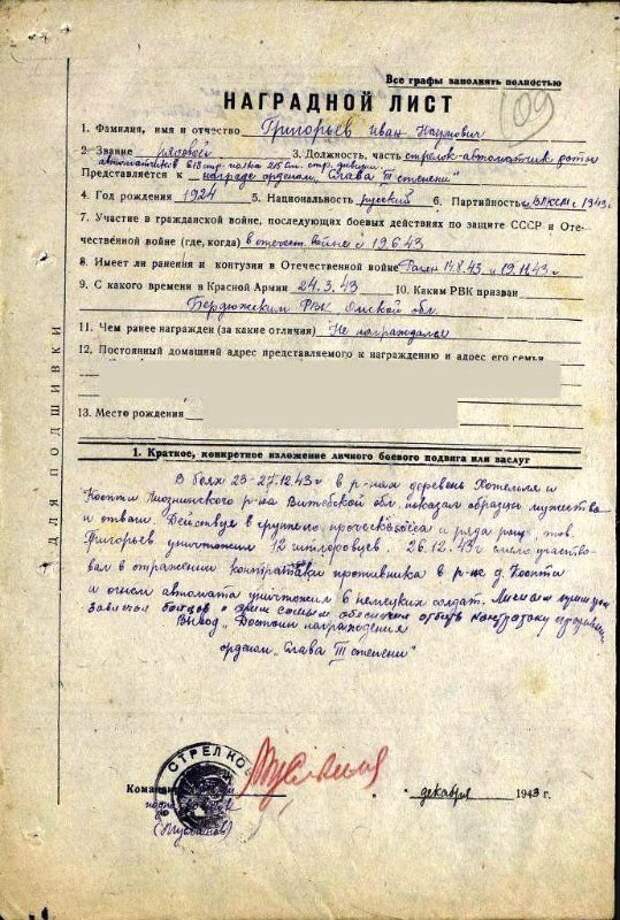 Все графы заполнять полностью
НАГРАДНОЙ ЛИСТ
109
1. Фамилия, имя и отчество Григорьев Иван Наумович
2. Звание рядовой 3. Должность, часть стрелок-автоматчик роты
автоматчиков 618 стр. полка 215 стр. дивизии
Представляется к награде орденом „Слава III степени"
4. Год рождения 1924 5. Национальность русский 6. Партийность ВЛКСМ с 1943 г.
7. Участие в гражданской войне, последующих боевых действиях по защите СССР и Оте-
чественной войне (где, когда) в отечест. войне с 19.6.43
8. Имеет ли ранения и контузии в Отечественной войне Ранен 14.8.43 и 19.11.43 г
9. С какого времени в Красной Армии 24.3.43 10. Каким РВК призван
Бердюжским РВК Омской обл.
11. Чем ранее награжден (за какие отличия) Не награждался
12. Постоянный домашний адрес представляемого к награждению и адрес его семьи
13. Место рождения
ДЛЯ ПОДШИВКИ
1. Краткое, конкретное изложение личного боевого подвига или заслуг
В боях 23-27.12.43 г в р-нах деревень и
Копти Лиозненского р-на Витебской обл. показал образцы мужества
и отваги. Действуя в группе прочеса леса и ряда рощ, тов.
Григорьев уничтожил 12 гитлеровцев. 26.12.43 г смело участво-
вал в отражении контратаки противника в р-не д. Копти
и огнем автомата уничтожил 6 немецких солдат. Личным примером
бойцов и этим самым обеспечил отбить контратаку
Вывод „Достоин награждения
орденом „Слава III степени"
СТРЕЛКО
Коман
декабря 1943 г.